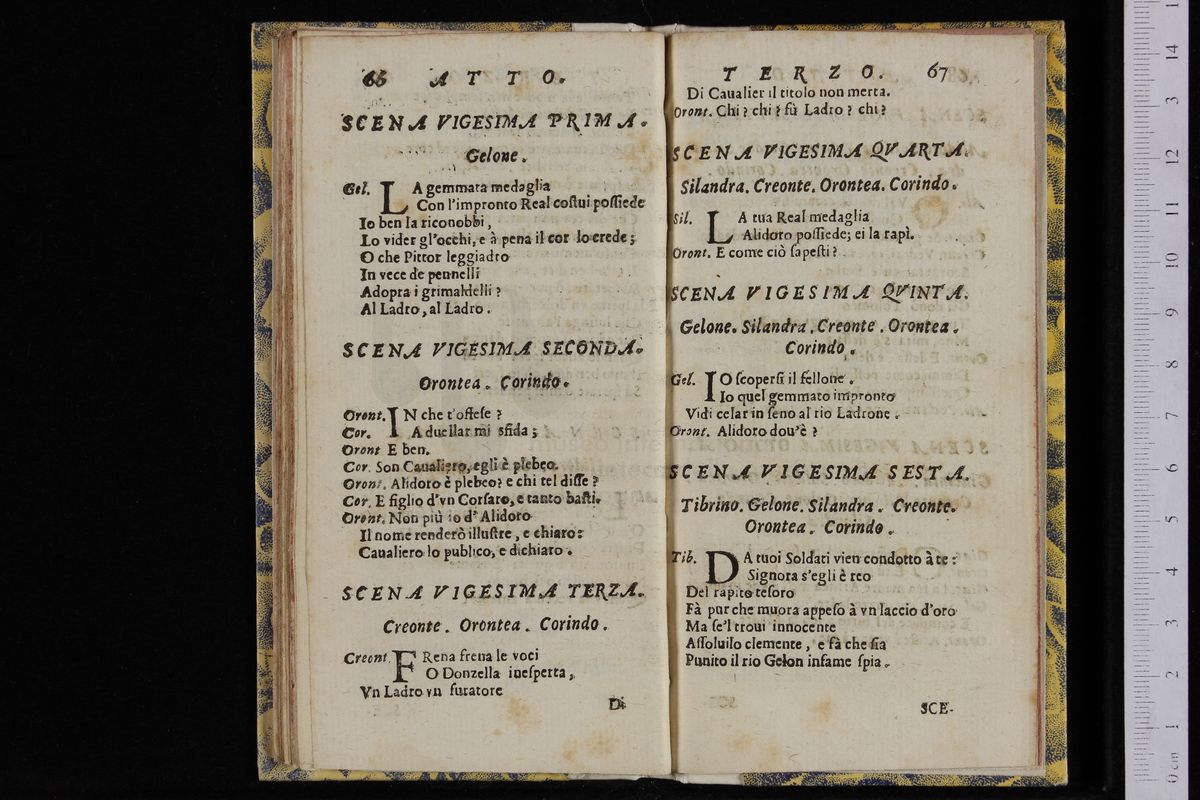 66 ATTO.
SCENA VIGESIMA PRIMA.
Gelone.
Gel. LA gemmata medaglia
Con l'impronto Real costui possiede
Io ben la riconobbi,
Lo vider gl'occhi, e à pena il cor lo crede;
O che Pittor leggiadro
In vece de pennelli
Adopra i grimaldelli?
Al Ladro, al Ladro.
SCENA VIGESIMA SECONDA.
Orontea. Corindo.
Oront. IN che t'offese?
Cor. A duellar mi sfida;
Oront E ben.
Cor. Son Caualiero, egli è plebeo.
Oront. Alidoro è plebeo? e chi tel disse?
Cor. E figlio d'vn Corsaro, e tanto basti.
Oront. Non più io d'Alidoro
Il nome renderò illustre, e chiaro:
Caualiero lo publico, e dichiaro.
SCENA VIGESIMA TERZA.
Creonte. Orontea. Corindo.
Creont. FRena frena le voci
O Donzella inesperta,
Vn Ladro vn furatore
Di
TERZO. 67
Di Caualier il titolo non merta.
Oront. Chi? chi? fù Ladro? chi?
SCENA VIGESIMA QVARTA.
Silandra. Creonte. Orontea. Corindo.
Sil. LA tua Real medaglia
Alidoro possiede; ei la rapì.
Oront. E come ciò sapesti?
SCENA VIGESIMA QVINTA.
Gelone. Silandra. Creonte. Orontea.
Corindo.
Gel. IO scopersi il fellone.
Io quel gemmato impronto
Vidi celar in seno al rio Ladrone.
Oront. Alidoro dou'è?
SCENA VIGESIMA SESTA.
Tibrino. Gelone. Silandra. Creonte.
Orontea. Corindo.
Tib. DA tuoi Soldati vien condotto à te:
Signora s'egli è reo
Del rapito tesoro
Fà pur che muora appeso à vn laccio d'oro
Ma se'l troui innocente
Assoluilo clemente, e fà che sia
Punito il rio Gelon infame spia.
SCE-
0 cm 1 2 3 4 5 6 7 8 9 10 11 12 13 14